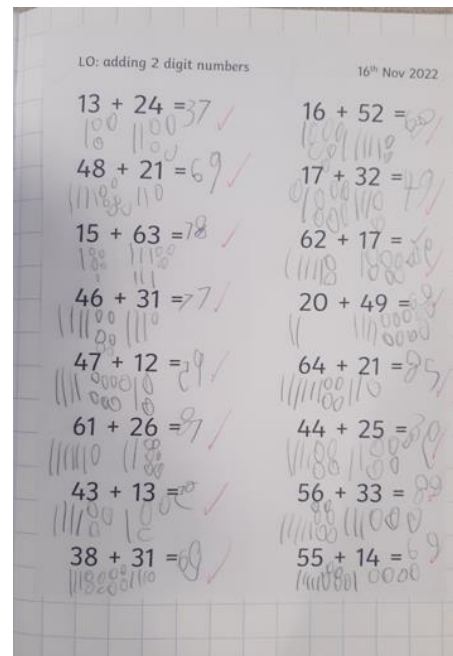 LO: adding 2 digit numbers
16th Nov 2022
13 + 24 = 37
48 + 21 = 69
15 + 63 = 78
46 + 31 = 77
47 + 12 = 59
61 + 26 = 87
43 + 13 =
38 + 31 = 69
16 + 52 =
17 + 32 = 49
62 + 17 =
20 + 49 =
64 + 21 = 85
44 + 25 =
56 + 33 = 89
55 + 14 = 69